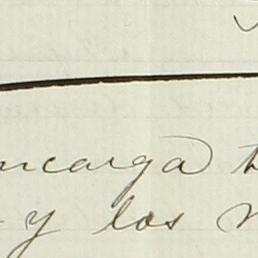 ncarga
y los